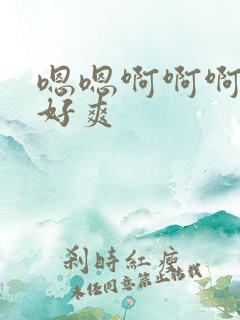 嗯嗯啊啊啊
好爽
刹时红瘦
未经同意禁止转载